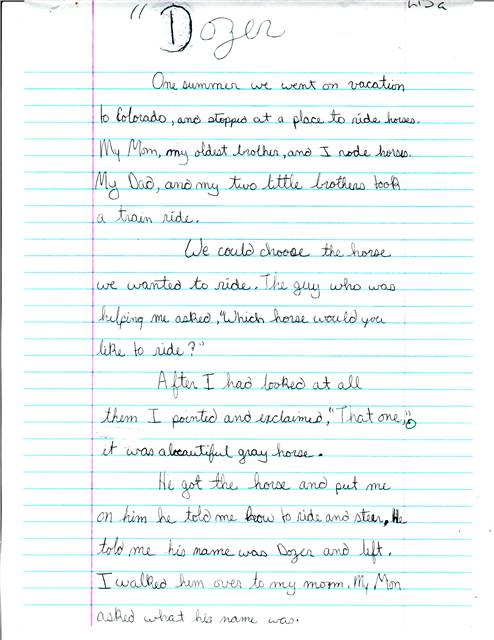 Lisa
"Dozer
One summer we went on vacation
to Colorado, and stopped at a place to ride horses.
My Mom, my oldest brother, and I rode horses.
My Dad, and my two little brothers took
a train ride.
We could choose the horse
we wanted to ride. The guy who was
helping me asked, "Which horse would you
like to ride?"
After I had looked at all
them I pointed and exclaimed, "That one,".
it was a beautiful gray horse.
He got the horse and put me
on him he told me how to ride and steer, He
told me his name was Dozer and left.
I walked him over to my mom. My Mon
asked what his name was.